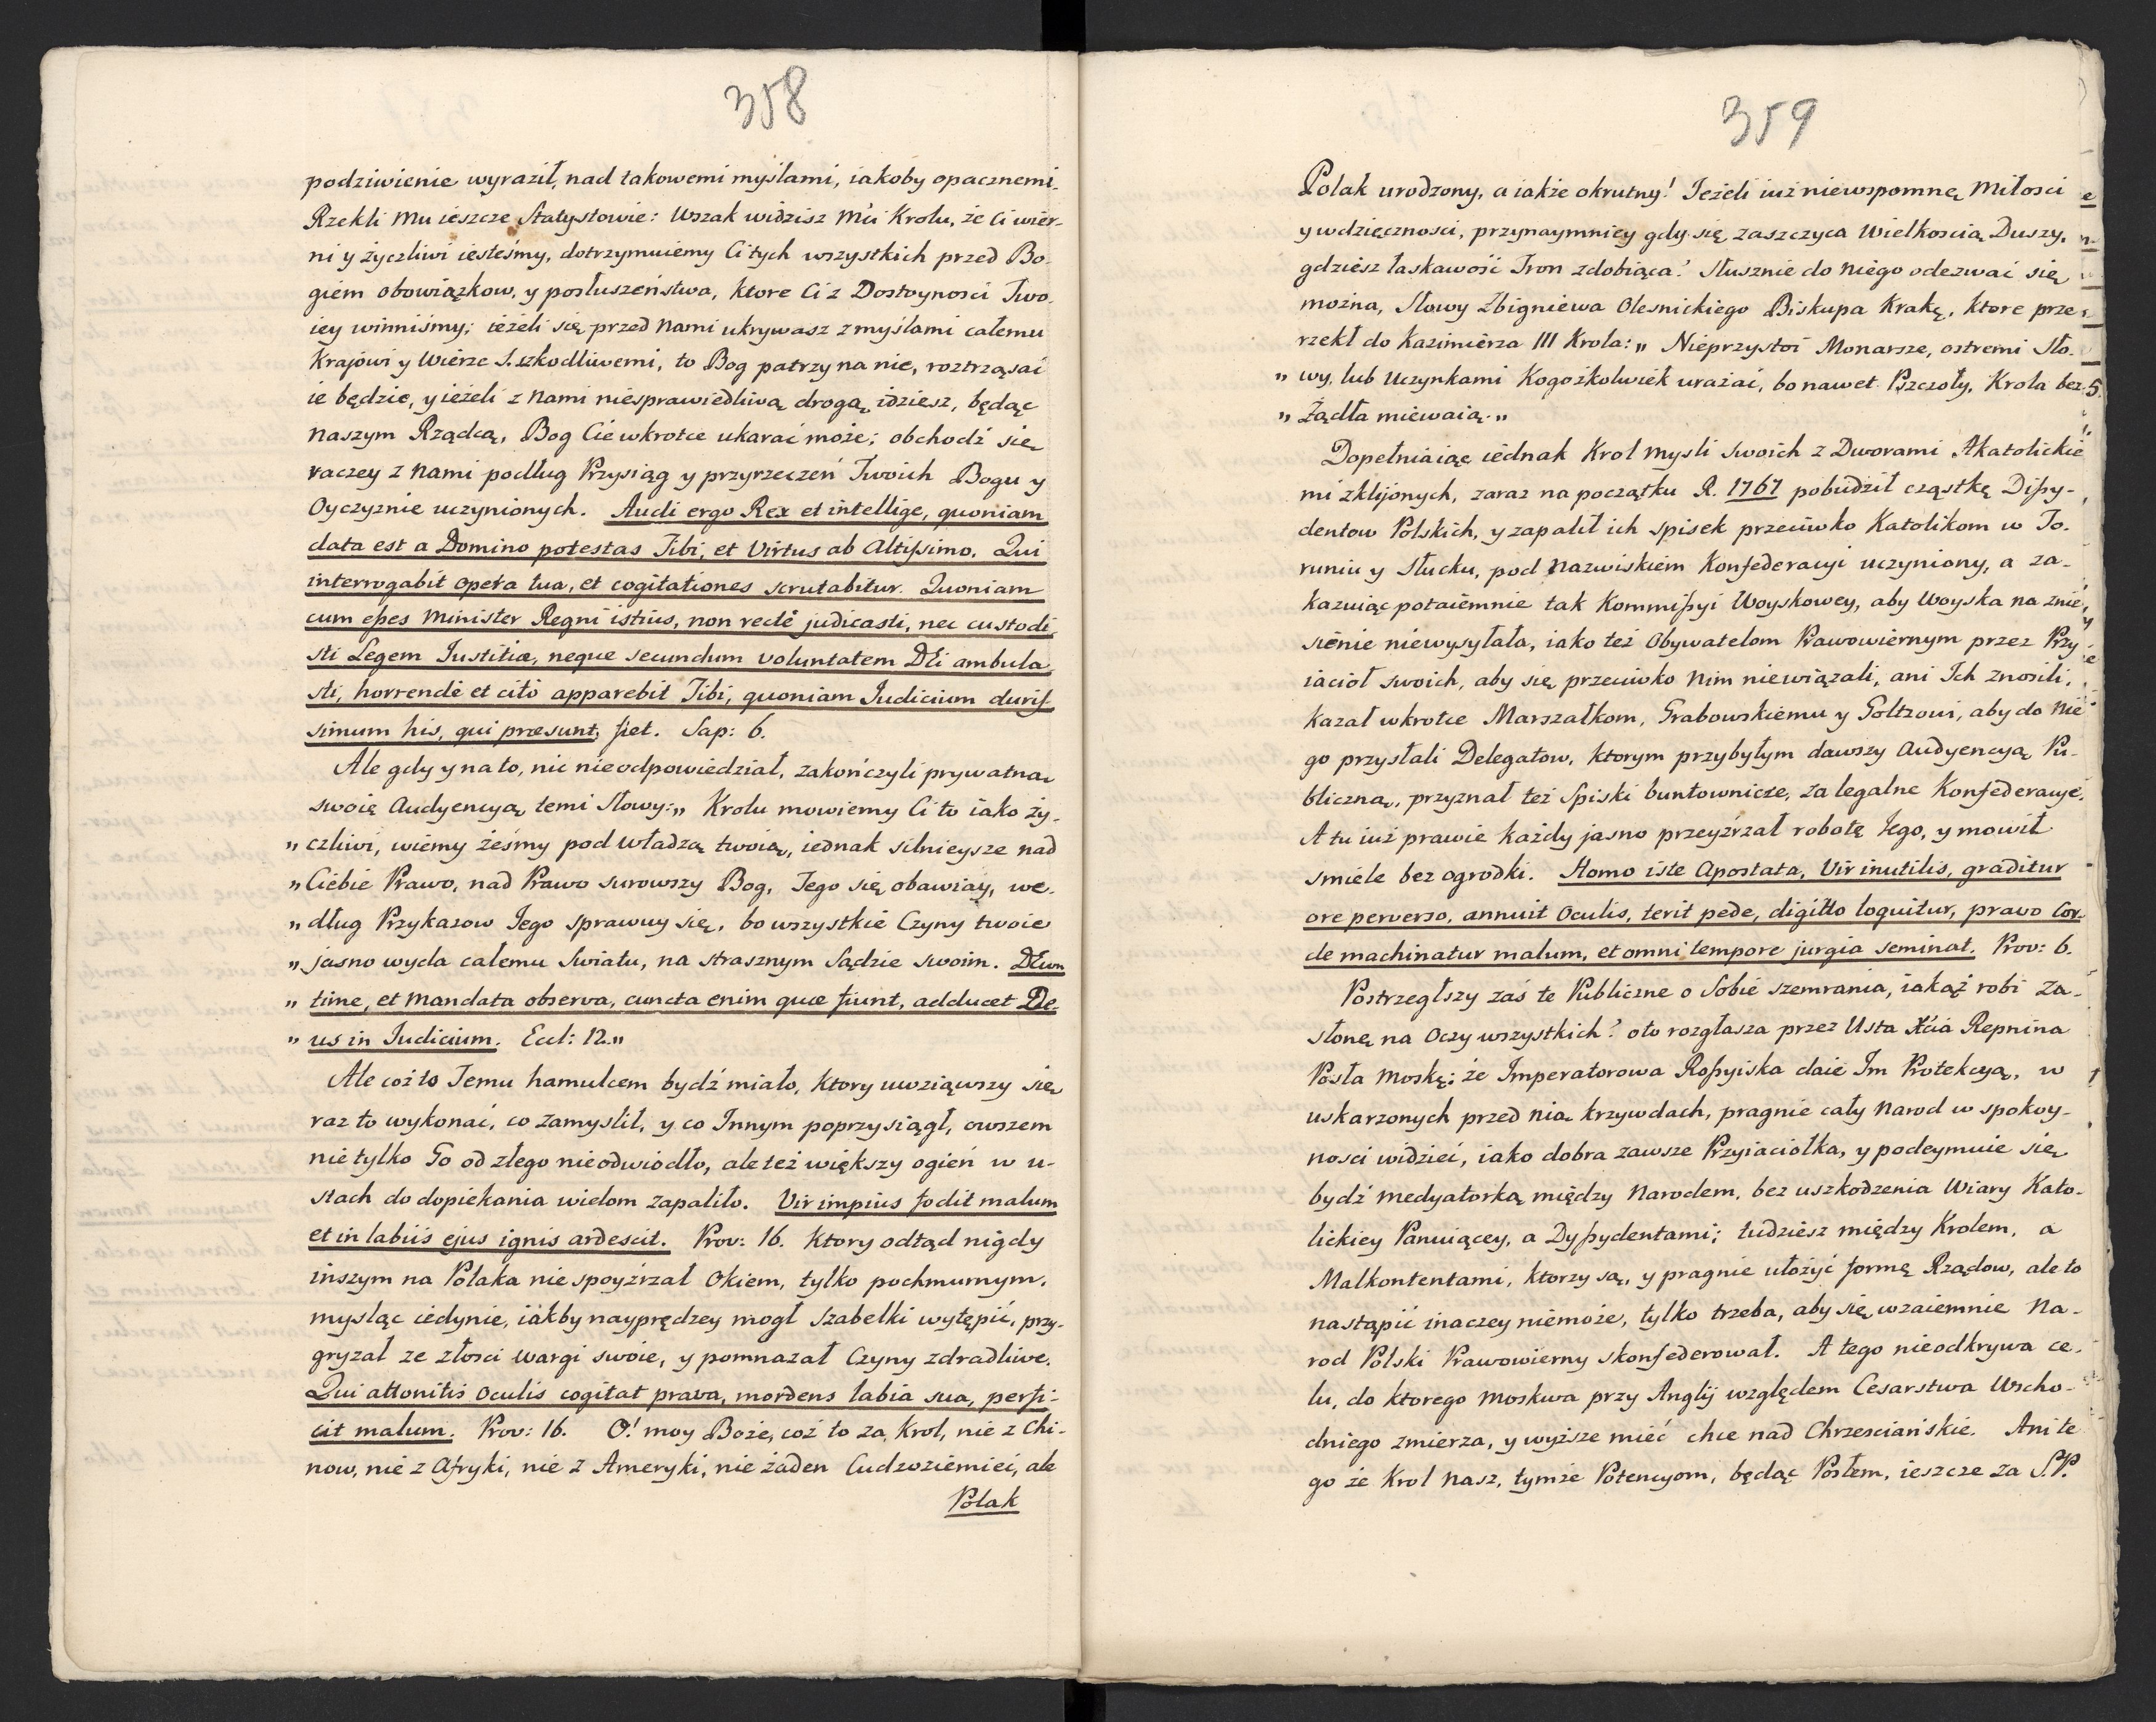 358
podziwienie wyraził, nad takowemi myślami, iakoby opacznemi.
Rzekli Mu ieszcze Statystowie: Wszak widzisz Mci Krolu, że Ci wier-
ni y życzliwi iesteśmy, dotrzymuiemy Ci tych wszystkich przed Bo-
giem obowiązkow, y posłuszeństwa, ktore Ci z Dostoynosci Two-
iey winniśmy; ieżeli się przed Nami ukrywasz z myślami całemu
Krajowi y Wierze S. szkodliwemi, to Bog patrzy na nie, roztrząsać
ie będzie, y ieżeli z Nami niesprawiedliwą drogą idziesz, będąc
Naszym Rządcą, Bog Cie wkrotce ukarać może; obchodź się
raczey z Nami podług Przysiąg y przyrzeczeń Twoich Bogu y
Oyczyznie uczynionych. Audi ergo Rex et intellige, quoniam
data est a Domino potestas Tibi, et Virtus ab Altissimo. Qui
interrogabit opera tua, et cogitationes scrutabitur. Quoniam
cum esses Minister Regni istius, non rectè judicasti, nec custodi-
sti Legem Iustitiæ, neque secundum voluntatem DEi ambula-
sti, horrendè et citò apparebit Tibi, quoniam Iudicium duris-
simum his, qui præsunt, fiet. Sap: 6.
Ale gdy y na to, nic nieodpowiedział, zakończyli prywatną
swoię Audyencyą temi Słowy: „ Krolu mowiemy Ci to iako ży-
„ czliwi, wiemy żeśmy pod władzą twoią, iednak silnieysze nad
„ Ciebie Prawo, nad Prawo surowszy Bog, Jego się obawiay, we-
„ dług Przykazow Jego sprawuy się, bo wszystkie Czyny twoie
„ jasno wyda całemu Swiatu, na strasznym Sądzie swoim. DEum
„ time, et Mandata observa, cuncta enim quæ fiunt, adducet De-
„ us in Iudicium. Eccl: 12.„
Ale coż to Temu hamulcem bydź miało, ktory uwziąwszy się
raz to wykonać, co zamyslił, y co Innym poprzysiągł, owszem
nie tylko Go od złego nieodwiodło, ale też większy ogień w u-
stach do dopiekania wielom zapaliło. Vir impius fodit malum
et in labiis ejus ignis ardescit. Prov: 16. Ktory odtąd nigdy
inszym na Polaka niespoyźrzał Okiem, tylko pochmurnym,
mysląc iedynie, iakby nayprędzey mogł Szabelki wytępić, przy-
gryzał ze złosci Wargi swoie, y pomnażał Czyny zdradliwe.
Qui attonitis oculis cogitat prava, mordens labia sua, perfi-
cit malum. Prov: 16. O! moy Boże, coż to za Krol, nie z Chi-
now, nie z Afryki, nie z Ameryki, nie żaden Cudzoziemiec, ale
Polak
359
Polak urodzony, a iakże okrutny! Jeżeli iuż niewspomnę Miłosci
y wdzięcznosci, przynaymniey gdy się zaszczyca Wielkoscią Duszy,
gdziesz łaskawość Tron zdobiąca? Słusznie do Niego odezwać się
można, Słowy Zbigniewa Olesnickiego Biskupa Krakę, ktore prze-
rzekł do Kazimierza III Krola: „ Nieprzystoi Monarsze, ostremi Sło-
„ wy, lub Uczynkami Kogożkolwiek urażać, bo nawet Pszczoły, Krola bez
„ Żądła miewaią.„
Dopełniaiąc iednak Krol Mysli swoich z Dworami Akatolickie
mi zklijonych, zaraz na początku R. 1767 pobudził cząstkę Dissy-
dentow Polskich, y zapalił ich spisek przeciwko Katolikom w To-
runiu y Słucku, pod Nazwiskiem Konfederacyi uczyniony, a za-
kazuiąc potaiemnie tak Kommissyi Woyskowey, aby Woyska na znie-
sienie niewysyłała, iako też Obywatelom Prawowiernym przez Przy
iacioł swoich, aby się przeciwko Nim niewiązali, ani Ich znosili,
kazał wkrotce Marszałkom, Grabowskiemu y Goltzowi, aby do Nie
go przysłali Delegatow, ktorym przybyłym dawszy Audyencyą Pu-
bliczną, przyznał też Spiski buntownicze, za legalne Konfederacye.
A tu iuż prawie każdy jasno przeyźrzał robotę Jego, y mowił
smiele bez ogrodki. Homo iste Apostata, Vir inutilis, graditur
ore perverso, annuit Oculis, terit pede, digitto loquitur, pravo Cor-
de machinatur malum, et omni tempore jurgia seminat. Prov: 6.
Postrzegłszy zaś te Publiczne o Sobie szemrania, iakąż robi Za-
słonę na Oczy wszystkich? oto rozgłasza przez Usta Xcia Repnina
Posła Moskę: że Imperatorowa Rossyiska daie Im Protekcyą, w
uskarzonych przed nią krzywdach, pragnie cały Narod w spokoy-
nosci widzieć, iako dobra zawsze Przyiaciołka, y podeymuie się
bydź Medyatorką między Narodem, bez uszkodzenia Wiary Kato-
lickiey Panuiącey, a Dyssydentami; tudziesz między Krolem, a
Malkontentami, ktorzy są, y pragnie ułożyć formę Rządow, ale to
nastąpić inaczey niemoże, tylko trzeba, aby się wzaiemnie Na-
rod Polski Prawowierny skonfederował. A tego nieodkrywa ce-
lu, do ktorego Moskwa przy Anglij względem Cesarstwa Wscho-
dniego zmierza, y wyższe mieć chce nad Chrzesciańskie. Ani te
go że Krol Nasz, tymże Potencyom, będąc Posłem, ieszcze za S.P.